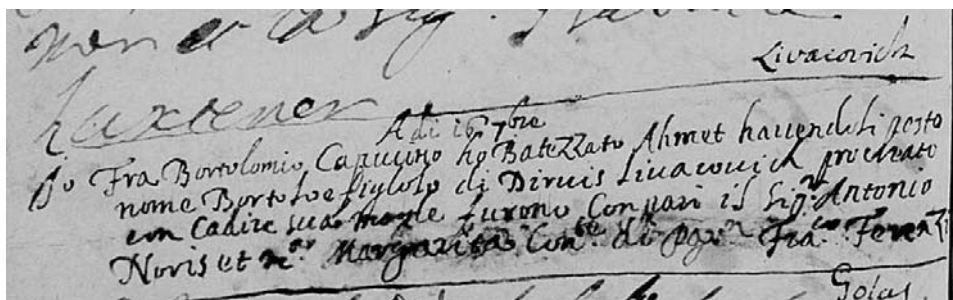 Livacovich
A di 16 7bre
Io Fra Bortolomio Capucino hò BateZZato Ahmet havendoli posto
nome Bortolo è figlolo di Dirvis Livacovich procreato
con Cadire sua moglie furono Compari il Sigr Antonio
Noris et Margarita Conte di Fraco FerenZi
Golas